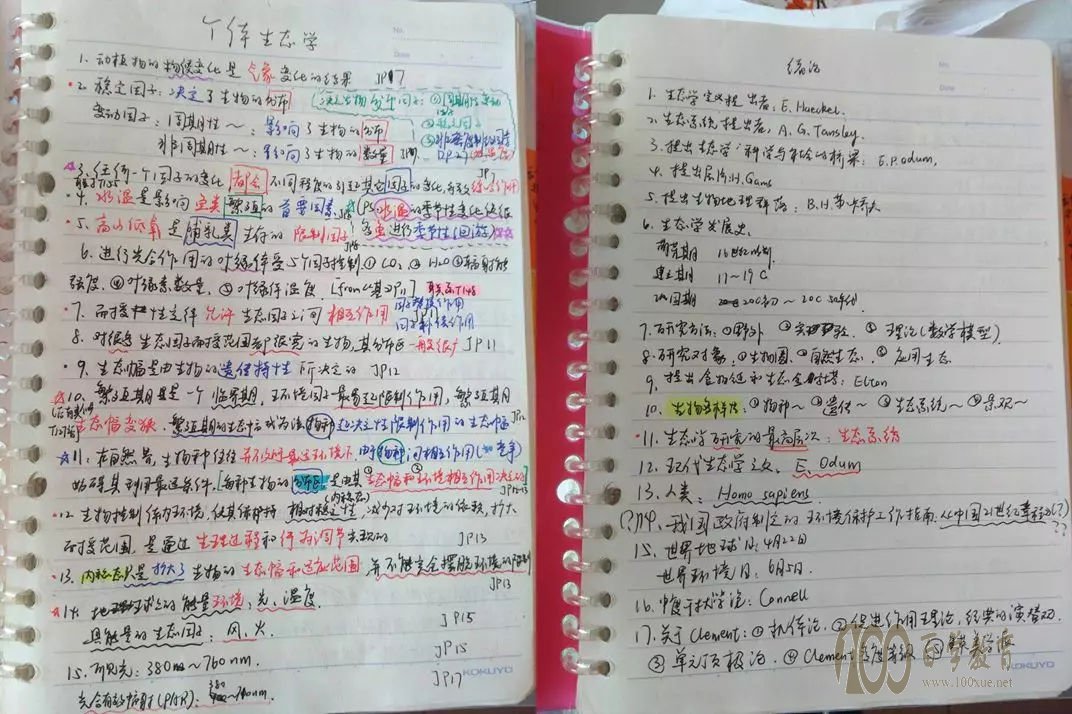 No.
Date
个体生态学
1. 动植物的物候变化是气象变化的结果 JP17
2. 稳定因子:决定了生物的分布
变动因子:周期性~:影响了生物的分布
非周期性~:影响了生物的数量
3. 任何一个因子的变化都会不同程度的引起其它因子的变化
4. 水温是影响鱼类繁殖的首要因素 (PS水温的季节性变化
5. 高山低氧是哺乳类生存的限制因子 鱼进行季节性(回游)
6. 进行光合作用的叶绿体受5个因子控制:① CO₂ ② H₂O ③辐射能
强度、④叶绿素数量、⑤叶绿体温度
7. 耐受性定律允许生态因子之间相互作用
因子替换作用
因子补偿作用
8. 对很多生态因子耐受范围都很宽的生物,其分布区一般很广 JP11
9. 生态幅是由生物的遗传特性所决定的 JP12
10. 繁殖期是一个临界期,环境因子最易起限制作用,繁殖期
生态幅变狭,繁殖期的生态幅成为该物种起决定性限制作用的生态幅
11. 在自然界,生物种往往并不处于最适环境下,由于物种间相互作用(如竞争
妨碍其利用最适条件,[每种生物的分布区是由其①生态幅和②环境相互作用决定的]
(内稳态)
12. 生物控制体内环境,使其保持相对稳定性,减少对环境的依赖,扩大
耐受范围,是通过生理过程和行为调节实现的 JP13
13. 内稳态只是扩大了生物的生态幅和适应范围,并不能完全摆脱环境的限制
JP13
14. 地球上的能量环境:光、温度
具能量的生态因子:风、火 JP15
15. 可见光:380nm~760nm. JP15
光合有效辐射(PAR): 380~ nm. JP17
KOKUYO
No.
Date
绪论
1. 生态学定义提出者:E. Haeckel.
2. 生态系统提出者:A. G. Tansley.
3. 提出生态学:科学与社会的桥梁:E.P.odum,
4. 提出层片:H. Gams
5. 提出生物地理群落:B.H.苏卡乔夫
6. 生态学发展史.
萌芽期 16世纪以前
建立期 17~19C
巩固期 20C初~20C 50年代
7. 研究方法:①野外 ②实验 ③理论(数学模型).
8. 研究对象:①生物圈 ②自然生态 ③应用生态
9. 提出食物链和生态金字塔:Elton
10. 生物多样性:①物种~②遗传~③生态系统~④景观~
11. 生态学研究的最高层次:生态系统
12. 现代生态学之父 E. Odum
13. 人类:Homo sapiens
(?)14. 我国政府制定的环境保护工作指南《中国21世纪议程》(?)
??
15. 世界地球日:4月22日
世界环境日:6月5日.
16. 中度干扰学说:Connell
17. 关于Clement:①机体论 ②促进作用理论,经典的演替观
③单元顶极论 ④Clement
KOKUYO
100百学教育
www.100xue.net